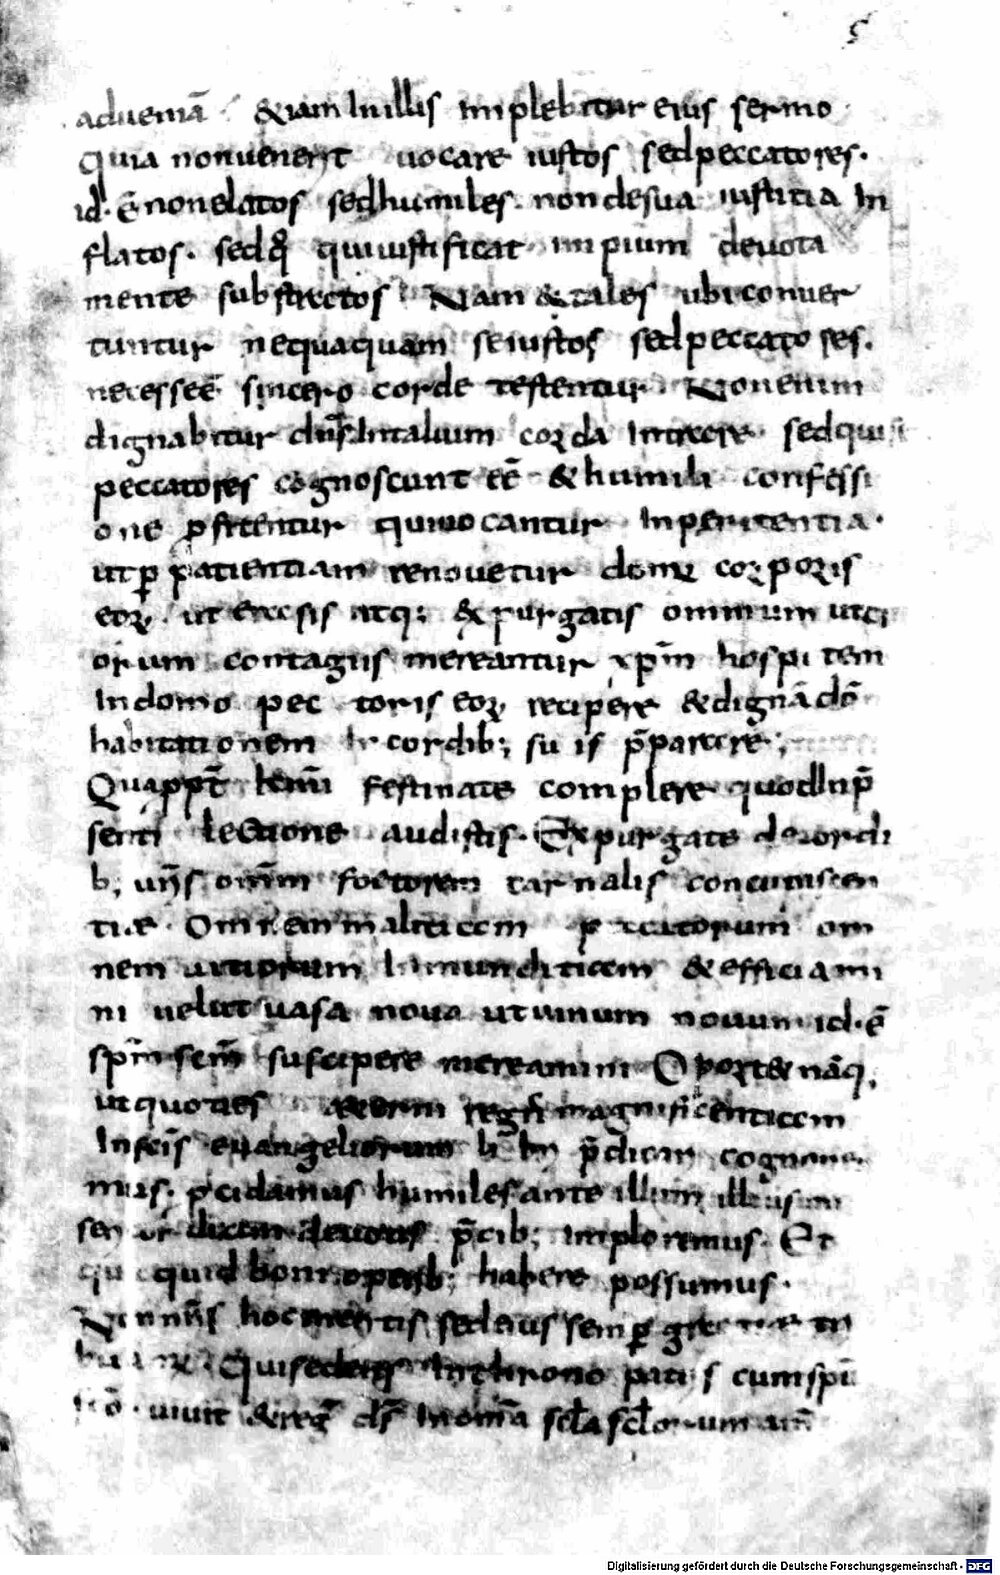 5
adueniā · &iam In illis implebitur eius sermo ·
Quia non uenerit uocare iustos sed peccatores ·
id · ē non elatos sed humiles · non de sua iustitia In
flatos · sed qui iustificat impium deuota
mente substratos · Nam & tales ubi conuer
tuntur nequaquam se iustos sed peccatores ·
necesse ē sincero corde testentur · Non enim
dignabitur dn̄s Intalium corda Intrare · sed qui s
peccatores cognoscunt eē & humili confessi
one ꝓfitentur qui uocantur In penitentia ·
ut ꝑ patientiam renouetur domꝰ corporis
eoꝝ · ut atq; expurgatis omnium uiti
orum contagiis mereantur xp̄m hospitem
In domo pectoris eoꝝ recipere & dignā dō
habitationem In cordib; suis p̄parare ;
Quapp̄t festinate complere quod In p̄
senti lectione audistis · Expurgate de cordi
b; ur̄is om̄m foetorem carnalis concupiscen
tiae · Omnem malitiam peccatorum om
nem uitiorum Inmunditiam & efficiami
ni uelut uasa noua ut uinum nouum id · ē
sp̄m sc̄m suscipere mereamini Oport& nāq;
ut quoties regni magnificentiam
In sc̄is euangeliorum p̄dicari cognoue
mus · ꝓcidamus humiles ante illum illius
deuotis p̄cib; imploremus · Et
quicquid boni operib; habere possumus ·
Non nr̄is hoc meritis sed eius semꝑ gratiae tri
buamꝰ · Qui sedens In throno patris cum spū
sc̄o · uiuit & reḡ ds̄ In om̄a scl̄a scl̄orum am̄
Digitalisierung gefördert durch die Deutsche Forschungsgemeinschaft - DFG